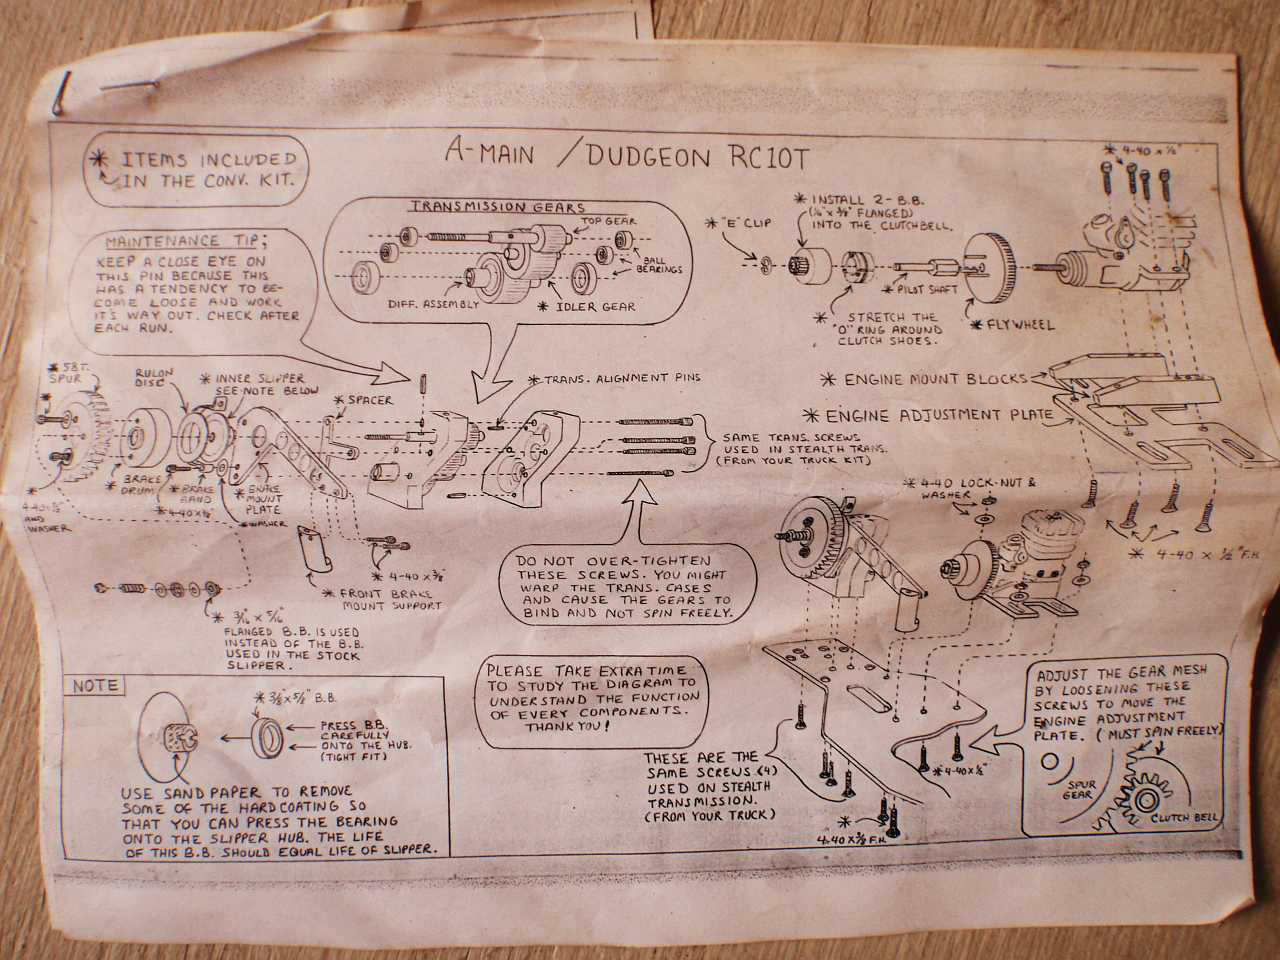 A-MAIN / DUDGEON RC10T
* ITEMS INCLUDED
IN THE CONV. KIT.
MAINTENANCE TIP;
KEEP A CLOSE EYE ON
THIS PIN BECAUSE THIS
HAS A TENDENCY TO BE-
COME LOOSE AND WORK
IT'S WAY OUT. CHECK AFTER
EACH RUN.
TRANSMISSION GEARS
TOP GEAR
BALL
BEARINGS
DIFF. ASSEMBLY
* IDLER GEAR
* "E" CLIP
* INSTALL 2- B.B.
(¼"x⅜" FLANGED)
INTO THE CLUTCHBELL.
* PILOT SHAFT
* STRETCH THE
"O" RING AROUND
CLUTCH SHOES.
* FLYWHEEL
* 4-40 x ½"
* ENGINE MOUNT BLOCKS
* ENGINE ADJUSTMENT PLATE
* 58T.
SPUR
RULON
DISC
* INNER SLIPPER
SEE NOTE BELOW
* SPACER
* TRANS. ALIGNMENT PINS
SAME TRANS. SCREWS
USED IN STEALTH TRANS.
(FROM YOUR TRUCK KIT)
* BRAKE
DRUM
* BRAKE
BAND
* BRAKE
MOUNT
PLATE
* WASHER
AND
WASHER
* 4-40 x ⅜"
* FRONT BRAKE
MOUNT SUPPORT
* 3/16" x 5/16"
FLANGED B.B. IS USED
INSTEAD OF THE B.B.
USED IN THE STOCK
SLIPPER.
DO NOT OVER-TIGHTEN
THESE SCREWS. YOU MIGHT
WARP THE TRANS. CASES
AND CAUSE THE GEARS TO
BIND AND NOT SPIN FREELY.
* 4-40 LOCK-NUT &
WASHER
* 4-40 x ½" F.H.
PLEASE TAKE EXTRA TIME
TO STUDY THE DIAGRAM TO
UNDERSTAND THE FUNCTION
OF EVERY COMPONENTS.
THANK YOU!
THESE ARE THE
SAME SCREWS (4)
USED ON STEALTH
TRANSMISSION.
(FROM YOUR TRUCK)
* 4-40 x ½"
*
4-40 x ½ F.H.
ADJUST THE GEAR MESH
BY LOOSENING THESE
SCREWS TO MOVE THE
ENGINE ADJUSTMENT
PLATE. (MUST SPIN FREELY)
SPUR
GEAR
CLUTCH BELL
NOTE
* ⅜" x ⅝" B.B.
PRESS B.B.
CAREFULLY
ONTO THE HUB.
(TIGHT FIT)
USE SAND PAPER TO REMOVE
SOME OF THE HARD COATING SO
THAT YOU CAN PRESS THE BEARING
ONTO THE SLIPPER HUB. THE LIFE
OF THIS B.B. SHOULD EQUAL LIFE OF SLIPPER.